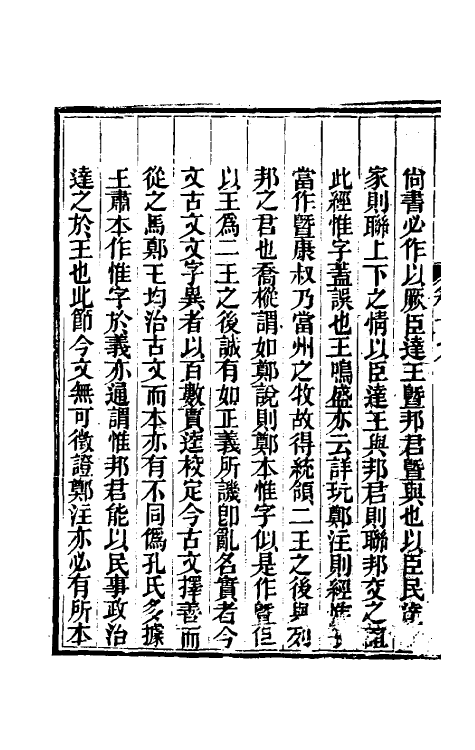 尙書必作以厥臣達王曁邦君曁與也以臣民達
家則聯上下之情以臣達王與邦君則聯邦交之誼
此經惟字蓋誤也王鳴盛亦云詳玩鄭注則經惟
當作曁康叔乃當州之牧故得統領二王之後與列
邦之君也喬樅謂如鄭說則鄭本惟字似是作曁但
以王爲二王之後誠有如正義所譏卽亂名實者今
文古文文字異者以百數賈逵校定今古文擇善而
從之馬鄭王均治古文而本亦有不同僞孔氏多據
王肅本作惟字於義亦通謂惟邦君能以民事政治
達之於王也此節今文無可徵證鄭注亦必有所本